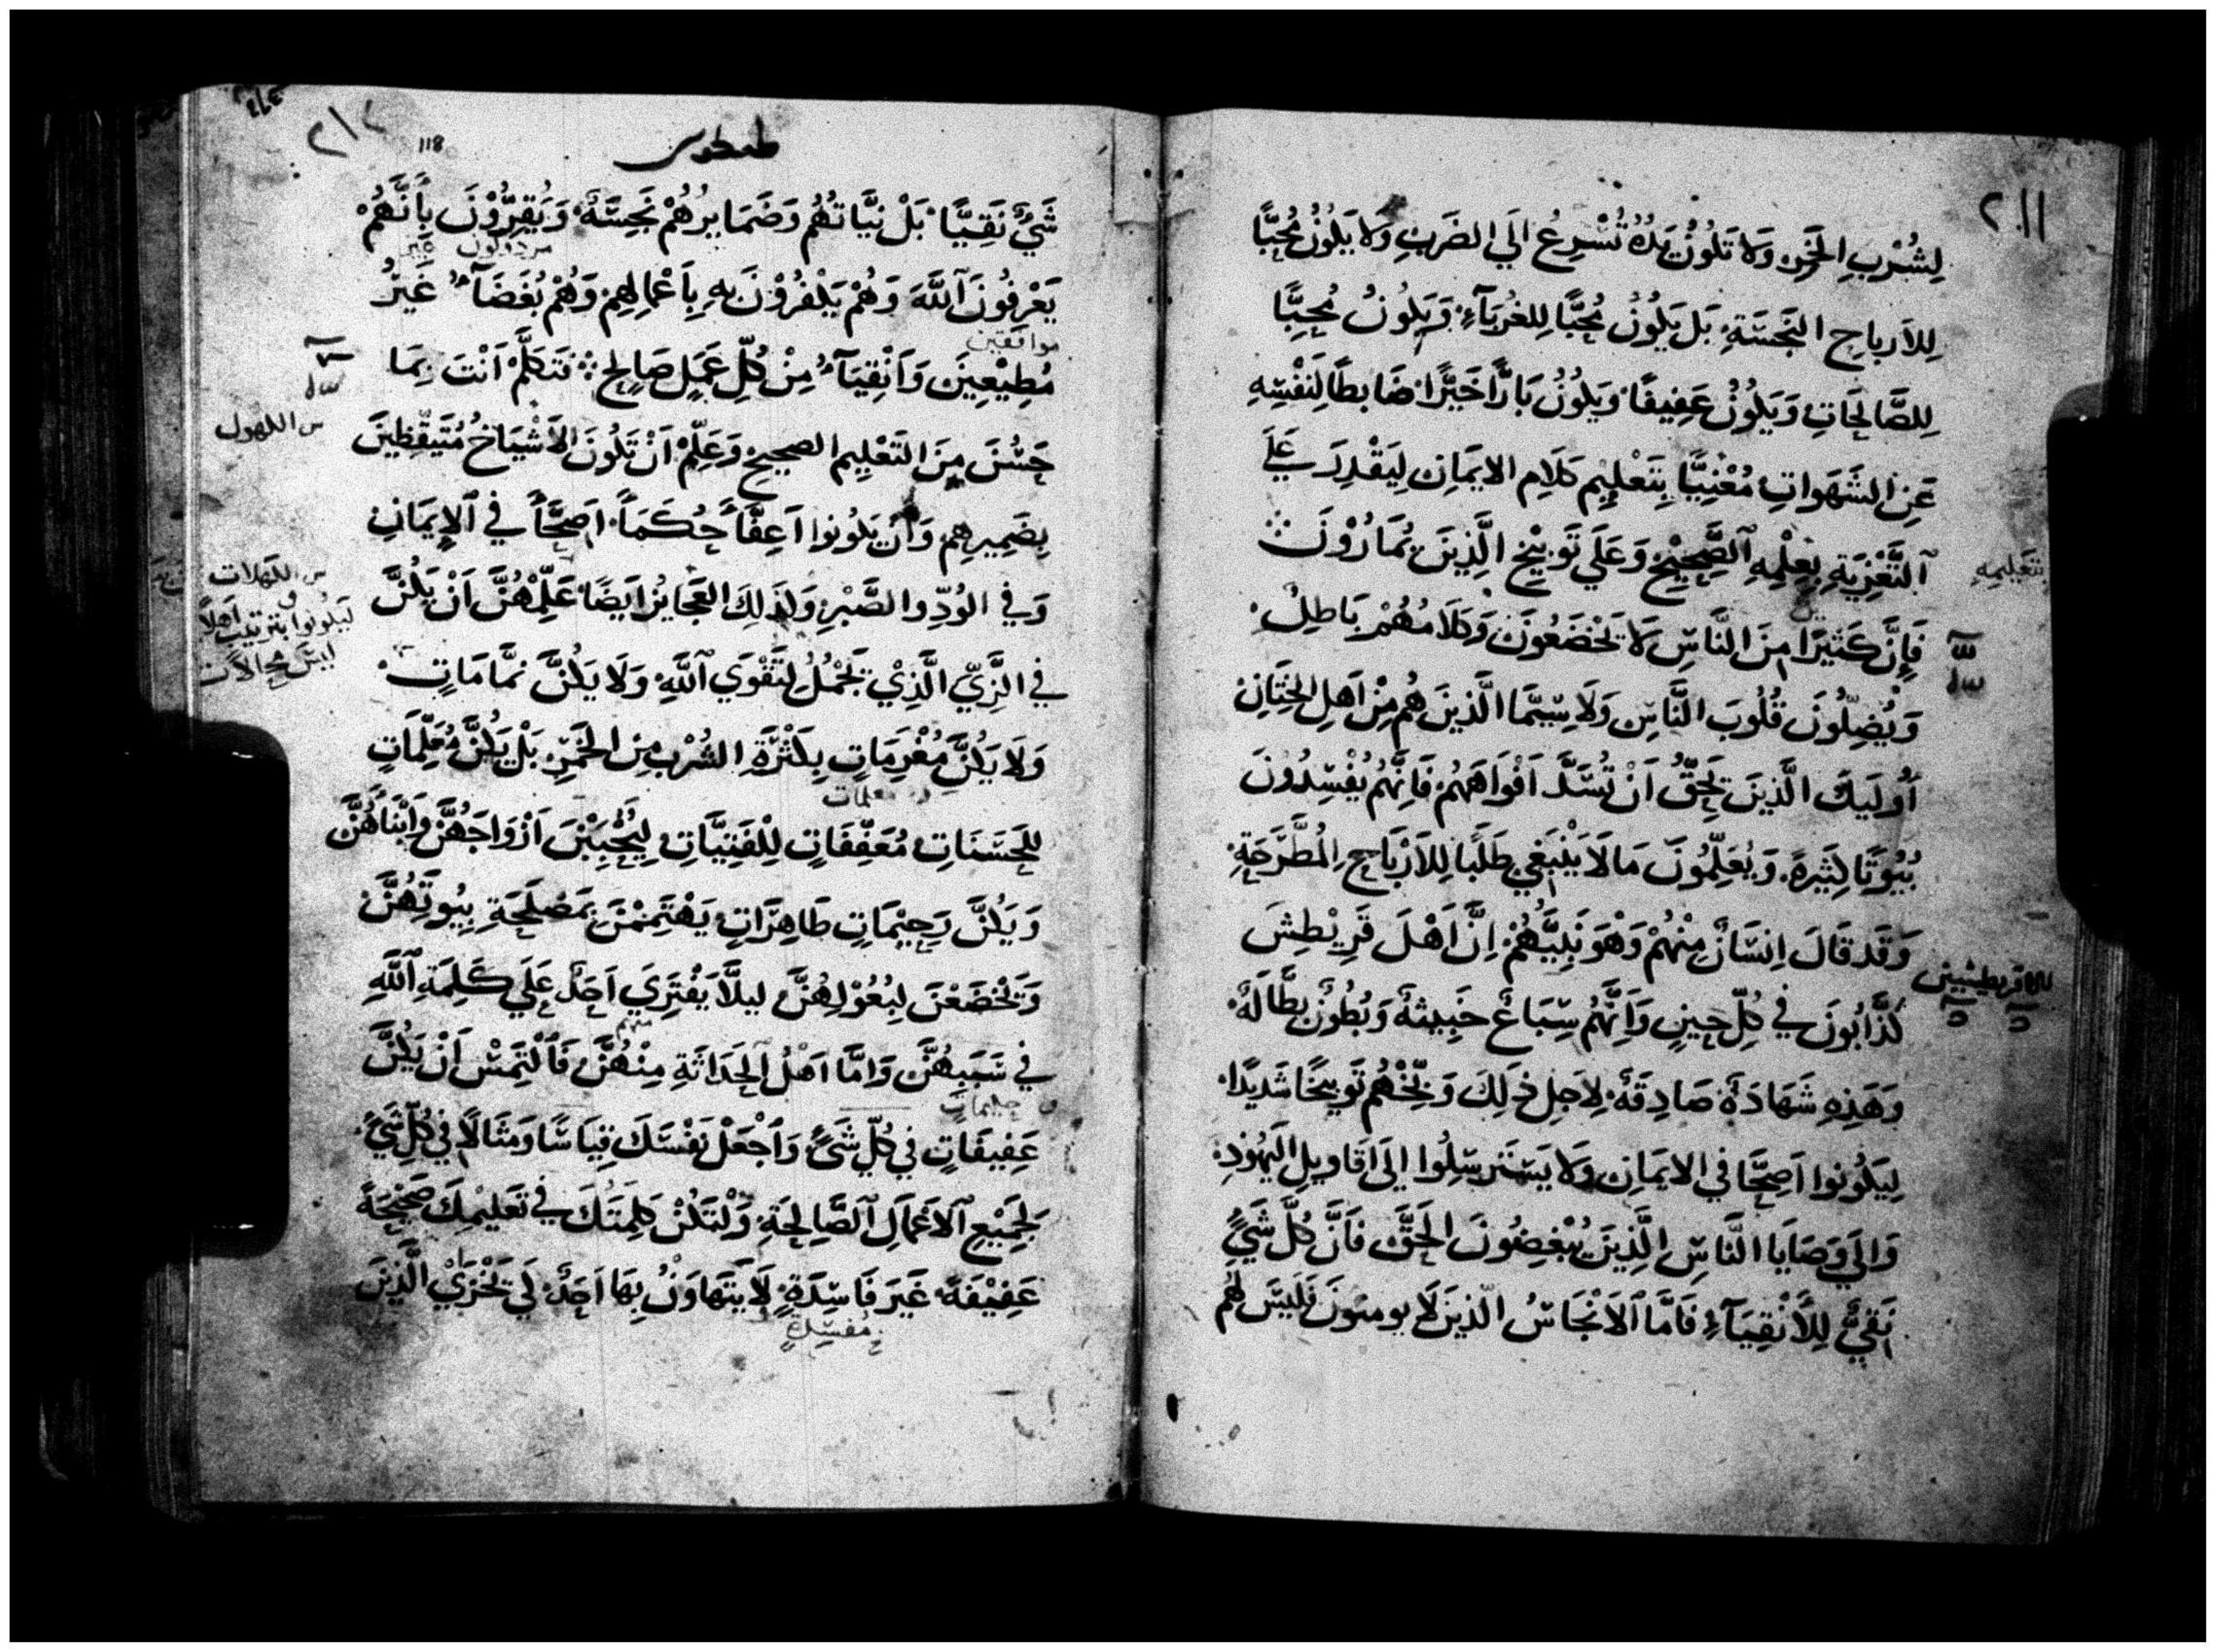 ٢١١
لِشُرْبِ الخَمْرِ وَلَا تَكُونُ يَدُهُ تُسْرِعُ الَي الضَربِ وَلَا يَكُونُ مُحِبًّا
لِلاَرباحِ النَجِسَةِ بَل يَكُونُ مُحِبًّا لِلغُرَبَآءِ وَيَكُونُ مُحِبًّا
لِلصَّالِحَاتِ وَيَكُونُ عَفِيفًا وَيَكُونُ بَارًّا خَيِّرًا ضَابِطًا لِنَفْسِهِ
عَنِ الشَهَواتِ مُعْنِيًّا بِتَعْلِيمِ كَلَامِ الايمَانِ لِيَقْدِرَ عَلَي
اَلتَّعْزِيَةِ بِعِلْمِهِ اَلصَّحِيْحِ وَعَلَي تَوبِيْخِ الَّذِينَ يُمَارُوْنَ
بتَعَليمِهِ
فَإِنَّ كَثيرًا مِنَ النَّاسِ لَا يَخْضَعُونَ وَكَلَامُهُمْ بَاطِلٌ
وَيُضِلُّونَ قُلُوبَ النَّاسِ وَلَا سِيَّمَا الَّذينَ هُم مِنْ اَهلِ الخِتَانِ
اُوليَكَ الَّذينَ يَحِقُّ اَنْ تُسَدَّ اَفْوَاهَهُمْ فَاِنَّهُمُ يُفْسِدُونَ
بُيُوتًا كَثِيرَةً وَيُعَلِّمُونَ مَا لَا يَنْبَغِي طَلَبًا لِلاَرْبَاحِ المُطَّرَحَةِ
وَقَد قَالَ اِنسَانٌ مِنْهُمْ وَهُوَ نَبِيُّهُمْ اِنَّ اَهْلَ قَرِيْطِشَ
للاقريطيشيين
كَذَّابُونَ في كُلِّ حِينٍ وَاِنَّهُم سِبَاعٌ خَبِيثةٌ وَبُطُونٌ بَطَّالَةٌ
وَهَذِهِ شَهَادَةٌ صَادِقَةٌ لِاَجلِ ذَلِكَ وَبِّخْهُم تَوبيخًا شَديدًا
لِيَكُونوا اَصِحَّا في الايمَانِ وَلا يَستَرسِلُوا الي اَقَاويلِ اليَهُودِ
وَالَي وَصَايَا النَّاسِ الَّذينَ يُبْغِضُونَ الحَقَّ فَانَّ كُلَّ شَيٍ
نَقِيٌّ لِلاَنْقِيَآءِ فَامَّا الاَنجَاسُ الّذينَ لَا يومنونَ فَلَيسَ لَهُم
٢١٢
118
طيطوس
شَيٌ نَقِيًّا بَلْ نيَّاتهُم وَضَمَايرُهُمْ نَجِسَةٌ وَيُقِرُّوْنَ بِاَنَّهُمْ
مردولون غير
يَعْرِفُونَ اَللَّهَ وَهُمْ يَكْفُرُوْنَ بِهِ بِاَعْمَالِهِمْ وَهُمْ بُغَضَآءُ غَيْرُ
موافقين
مُطِيْعِينَ وَاَنْقِيَآءُ مِنْ كُلِّ عَمَلٍ صَالِحٍ فَتَكَلَّمْ اَنْتَ بِمَا
حَسُنَ مِنَ التَعْلِيمِ الصحيحِ وَعَلِّمْ اَنْ تَكُونَ الاَشْيَاخُ مُتَيَقِّظِينَ
س الكهول
بِضَمِيرِهِم وَاَنْ يَكُونوا اَعِفَّاً حُكَمَاً اَصِحَّاً في اَلاِيمَانِ
وَفي الوُدِّ والصَّبْرِ وَكذَلكَ العَجَايزُ ايَضًا عَلِّمْهُنَّ اَنْ يَكُنَّ
س الكهلات
ليَكُونوا بتزتيب اَهلاً
في الزِّيِّ الَّذِيْ يَجْمُلُ لِتَقْوَي اَللَّهِ وَلَا يَكُنَّ نمَّامَاتٍ
ليسَ محالات
وَلَا يَكُنَّ مُغْرَمَاتٍ بِكَثْرَةِ الشُرْبِ مِنَ الخَمْرِ بَلْ يَكُنَّ مُعَلِّمَاتٍ
معلمات
لِلحَسَنَاتِ مُعَفِّفَاتٍ لِلْفَتِيَّاتِ لِيُحْبِبْنَ اَزْوَاجَهُنَّ وَاَبْنَاهُنَّ
وَيَكُنَّ رَحِيْمَاتٍ طَاهِرَاتٍ يَهْتَمِمْنَ بِمَصْلَحَةِ بِيُوتِهُنَّ
وَيَخْضَعْنَ لِبُعُوْلِهُنَّ ليلَّا يَفْتَرِيَ اَحَدٌ عَلَي كَلِمَةِ اَللَّهِ
في سَبَبِهُنَّ وَامَّا اَهْلُ الحَدَاثَةِ مِنْهُنَّ فَاَلْتَمِسْ اَنْ يَكُنَّ
منهم
عَفِيفَاتٍ في كُلِّ شَيٍ وَاَجْعَلْ نَفْسَكَ قِيَاسًا وَمثَالًا في كُلِّ شَيٍ
لِجَمِيْعِ اَلاَعمَالِ اَلصَّالِحَةِ وَلْتَكُنْ كَلِمَتُكَ في تَعَليْمِكَ صَحِيْحَةً
عَفِيْفَةً غَيرَ فَاسِدَةٍ لَا يَتَهَاوَنُ بِهَا اَحَدٌ لكَي يَخْزَيْ الَّذِينَ
مُفسِدَةٍ